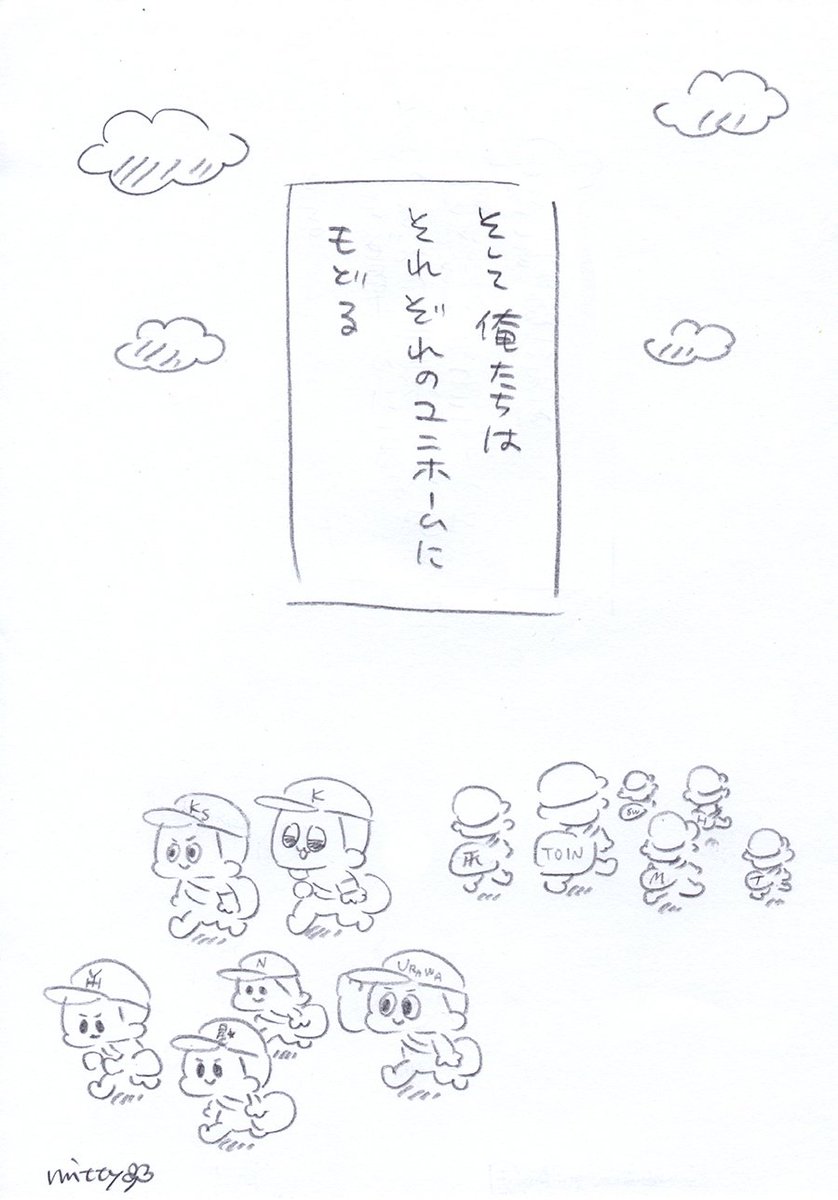 そして 俺たちは
それぞれのユニホームに
もどる
KS
K
TOIN
SW
M
T
YH
N
URAWA
mitty93